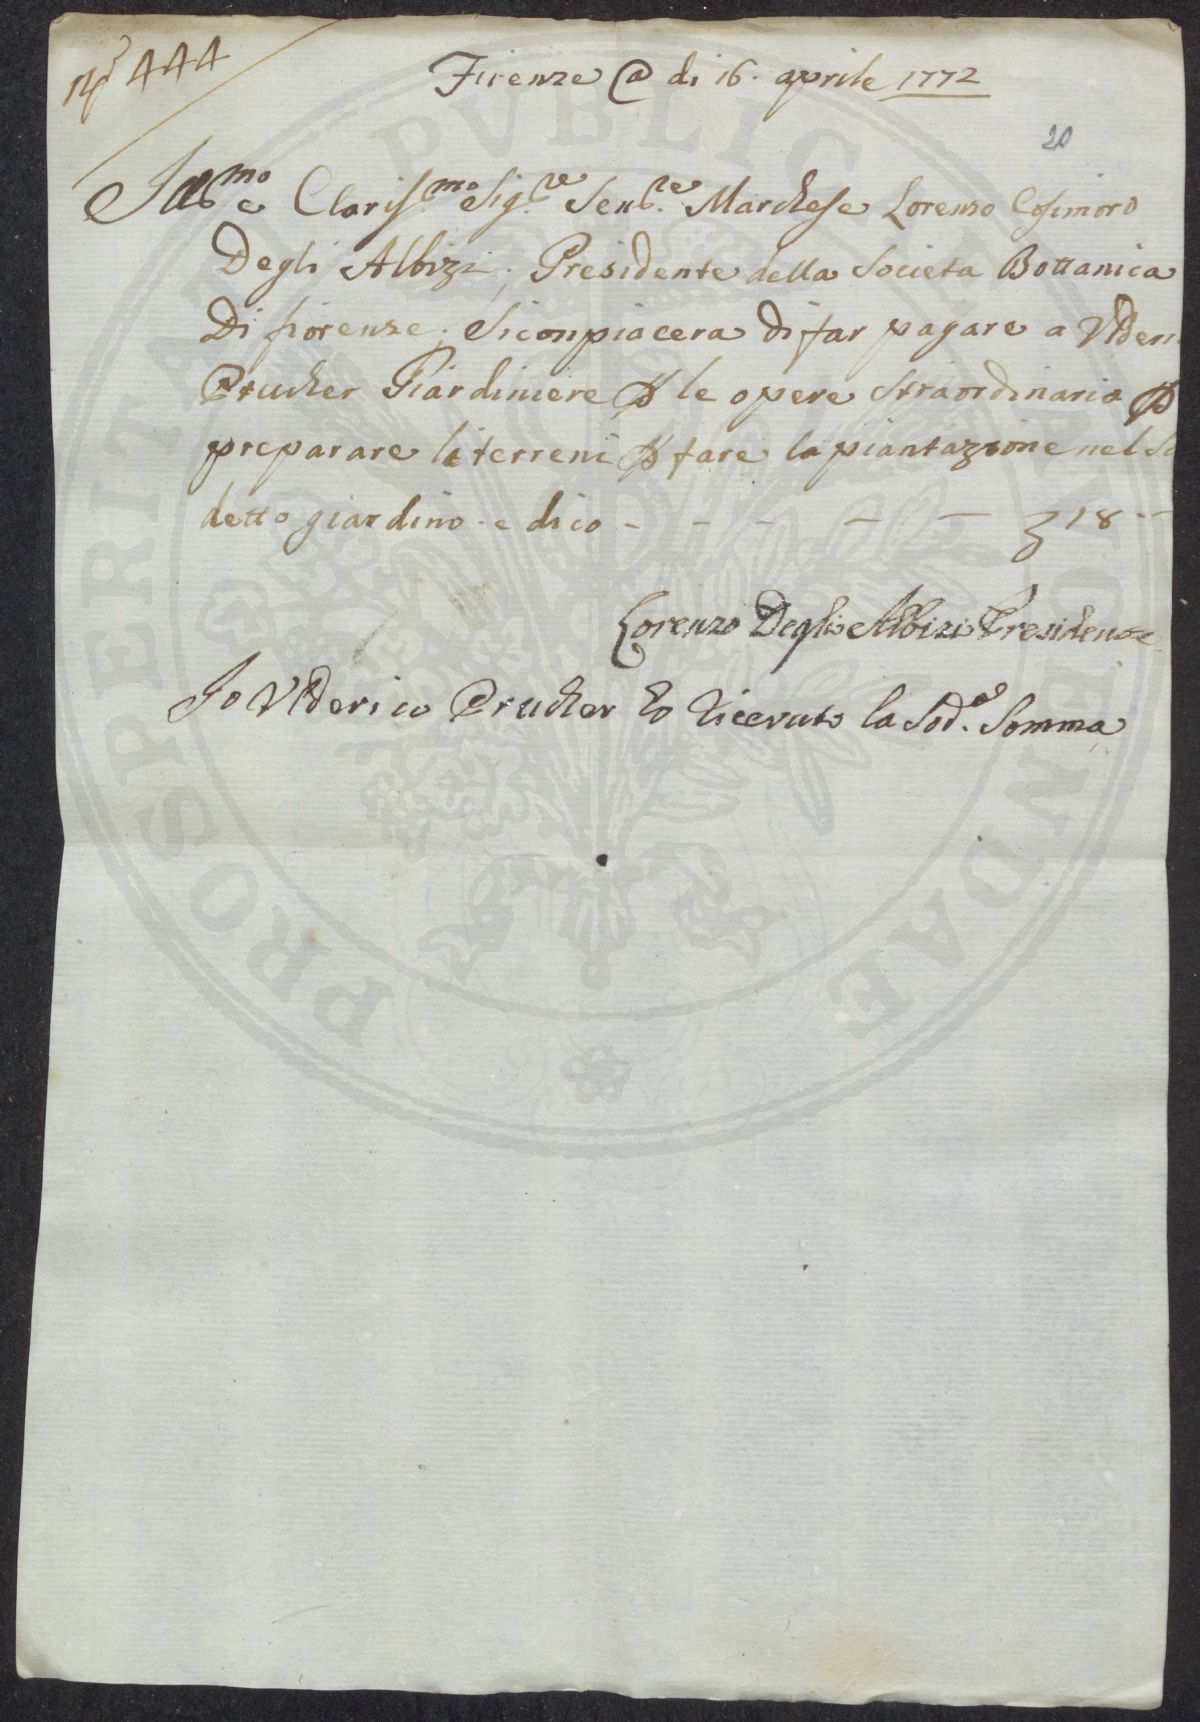 N.° 444
Firenze @ di 16. aprile 1772
20
Ill.mo e Clariss.mo Sig.re Sen.re Marchese Lorenzo Cosimoro
Degli Albizi, Presidente della Societa Bottanica
Di fiorenze. Si conpiacera di far pagare a Vlderi
Prucker Giardiniere p le opere straordinaria p
preparare li terreni p fare la piantazione nel Su
detto giardino e dico - - - - - 18 --
Lorenzo Degli Albizi Presidente
Io Vlderico Prucker ho ricevuto la Sod.a Somma
PUBLICAE
PROSPERITATI